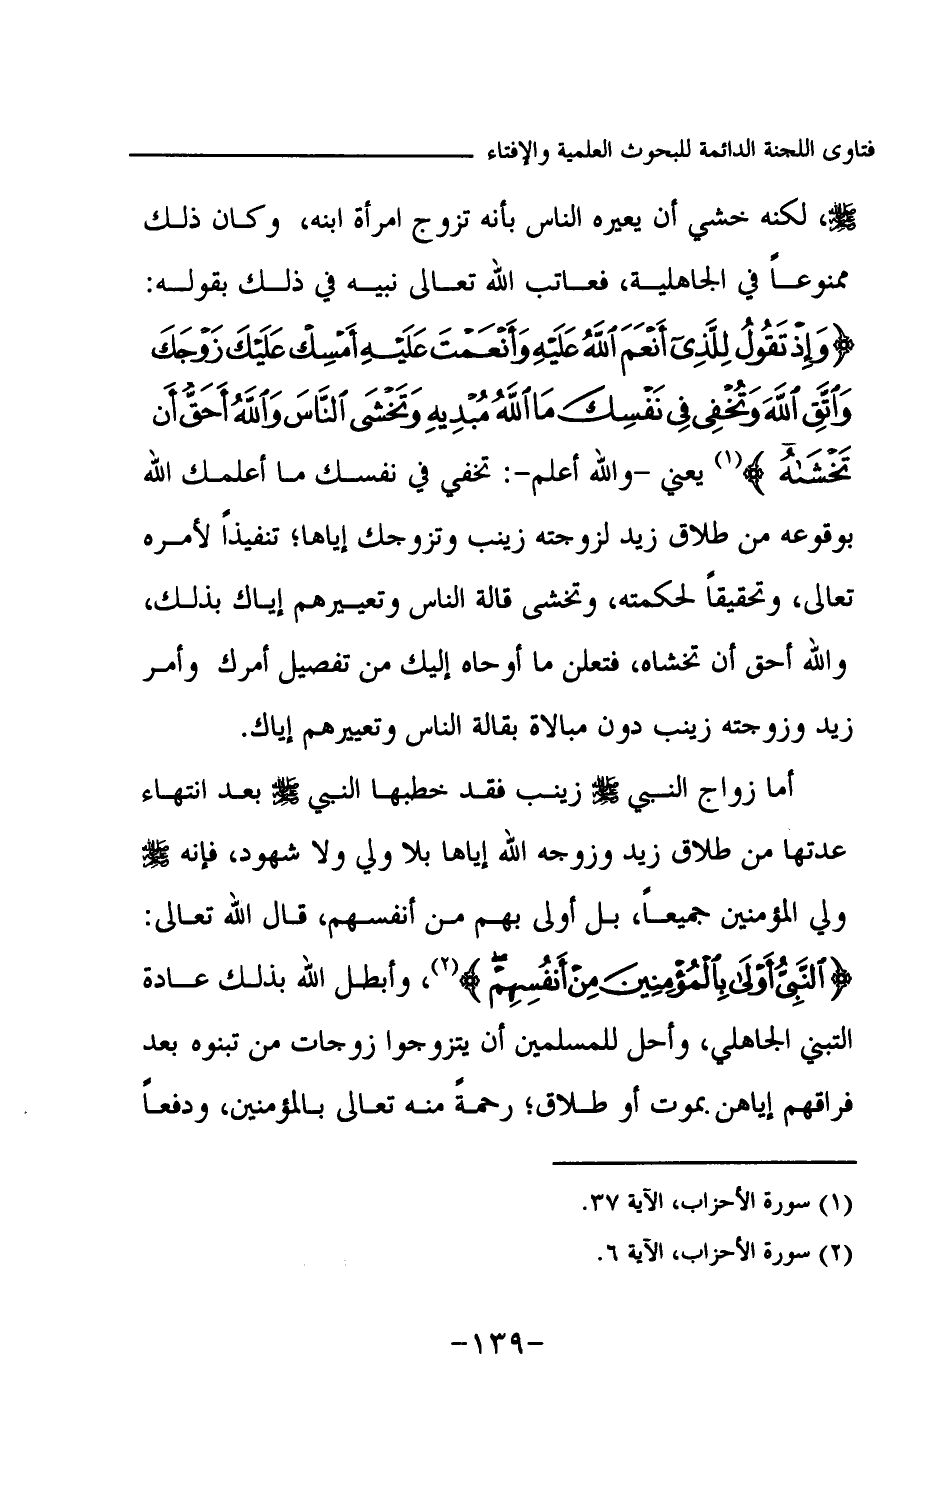 فتاوى اللجنة الدائمة للبحوث العلمية والإفتاء
ﷺ، لكنه خشي أن يعيره الناس بأنه تزوج امرأة ابنه، وكان ذلك
ممنوعاً في الجاهلية، فعاتب الله تعالى نبيه في ذلك بقوله:
﴿وَإِذْ تَقُولُ لِلَّذِىٓ أَنْعَمَ ٱللَّهُ عَلَيْهِ وَأَنْعَمْتَ عَلَيْهِ أَمْسِكْ عَلَيْكَ زَوْجَكَ
وَٱتَّقِ ٱللَّهَ وَتُخْفِى فِى نَفْسِكَ مَا ٱللَّهُ مُبْدِيهِ وَتَخْشَى ٱلنَّاسَ وَٱللَّهُ أَحَقُّ أَن
تَخْشَىٰهُ﴾(١) يعني -والله أعلم-: تخفي في نفسك ما أعلمك الله
بوقوعه من طلاق زيد لزوجته زينب وتزوجك إياها؛ تنفيذاً لأمره
تعالى، وتحقيقاً لحكمته، وتخشى قالة الناس وتعييرهم إياك بذلك،
والله أحق أن تخشاه، فتعلن ما أوحاه إليك من تفصيل أمرك وأمر
زيد وزوجته زينب دون مبالاة بقالة الناس وتعييرهم إياك.
أما زواج النبي ﷺ زينب فقد خطبها النبي ﷺ بعد انتهاء
عدتها من طلاق زيد وزوجه الله إياها بلا ولي ولا شهود، فإنه ﷺ
ولي المؤمنين جميعاً، بل أولى بهم من أنفسهم، قال الله تعالى:
﴿ٱلنَّبِىُّ أَوْلَىٰ بِٱلْمُؤْمِنِينَ مِنْ أَنفُسِهِمْ﴾(٢)، وأبطل الله بذلك عادة
التبني الجاهلي، وأحل للمسلمين أن يتزوجوا زوجات من تبنوه بعد
فراقهم إياهن بموت أو طلاق؛ رحمةً منه تعالى بالمؤمنين، ودفعاً
(١) سورة الأحزاب، الآية ٣٧.
(٢) سورة الأحزاب، الآية ٦.
-١٣٩-